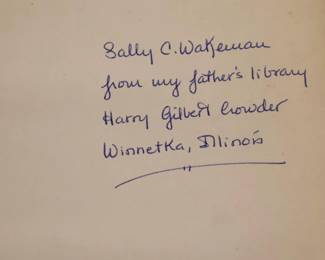 Sally C. Wakeman
from my father's library
Harry Gilbert Crowder
Winnetka, Illinois